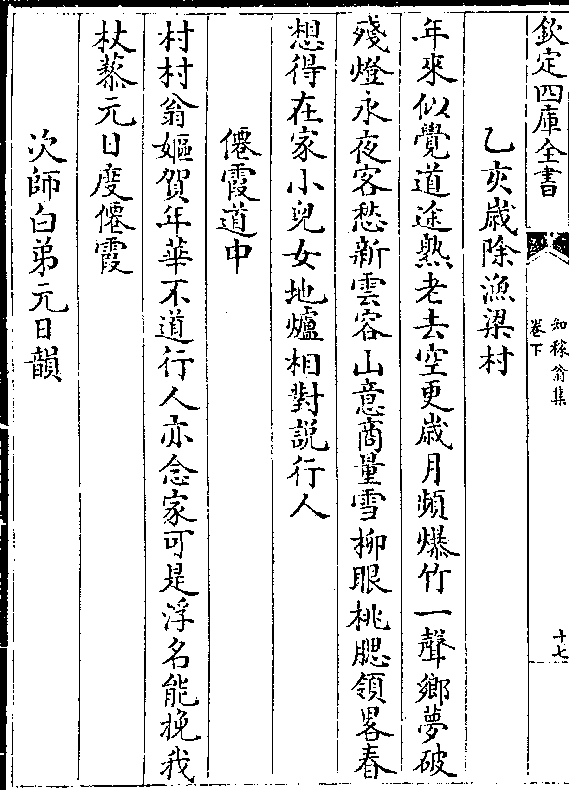 欽定四庫全書
知稼翁集
卷下
十七
乙亥歲除漁梁村
年來似覺道途熟老去空更歲月頻爆竹一聲鄉夢破
殘燈永夜客愁新雲容山意商量雪柳眼桃腮領畧春
想得在家小兒女地爐相對說行人
僊霞道中
村村翁嫗賀年華不道行人亦念家可是浮名能挽我
杖藜元日度僊霞
次師白弟元日韻